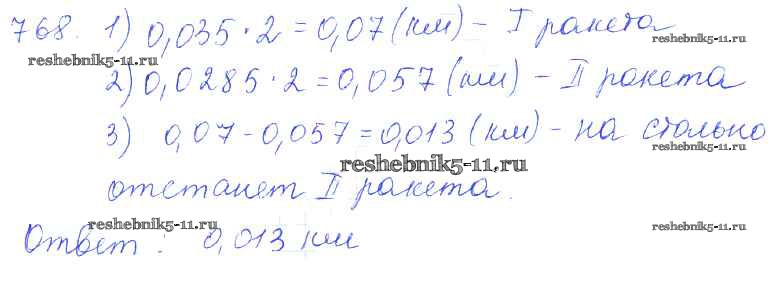 768. 1) 0,035 · 2 = 0,07 (км) – I ракета
reshebnik5-11.ru
reshebnik5-11.ru
2) 0,0285 · 2 = 0,057 (км) – II ракета
3) 0,07 – 0,057 = 0,013 (км) – на столько
reshebnik5-11.ru
reshebnik5-11.ru
отстанет II ракета.
reshebnik5-11.ru
reshebnik5-11.ru
Ответ: 0,013 км